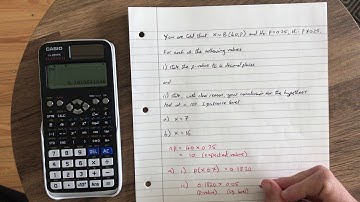 CASIO
CLASSWIZ
You are told that X ~ B(40,p) and H₀: p=0.25, H₁: p≠0.25.
For each of the following values
i) state the p-value to 4 decimal places
and
ii) state, with clear reason, your conclusion for the hypothesis
test at a 10% significance level
a) x = 7
b) x = 16
np = 40 × 0.25
= 10 (expected value)
a) i) P(X≤7) = 0.1820
ii) 0.1820 > 0.05
(p-value) (sig. level)